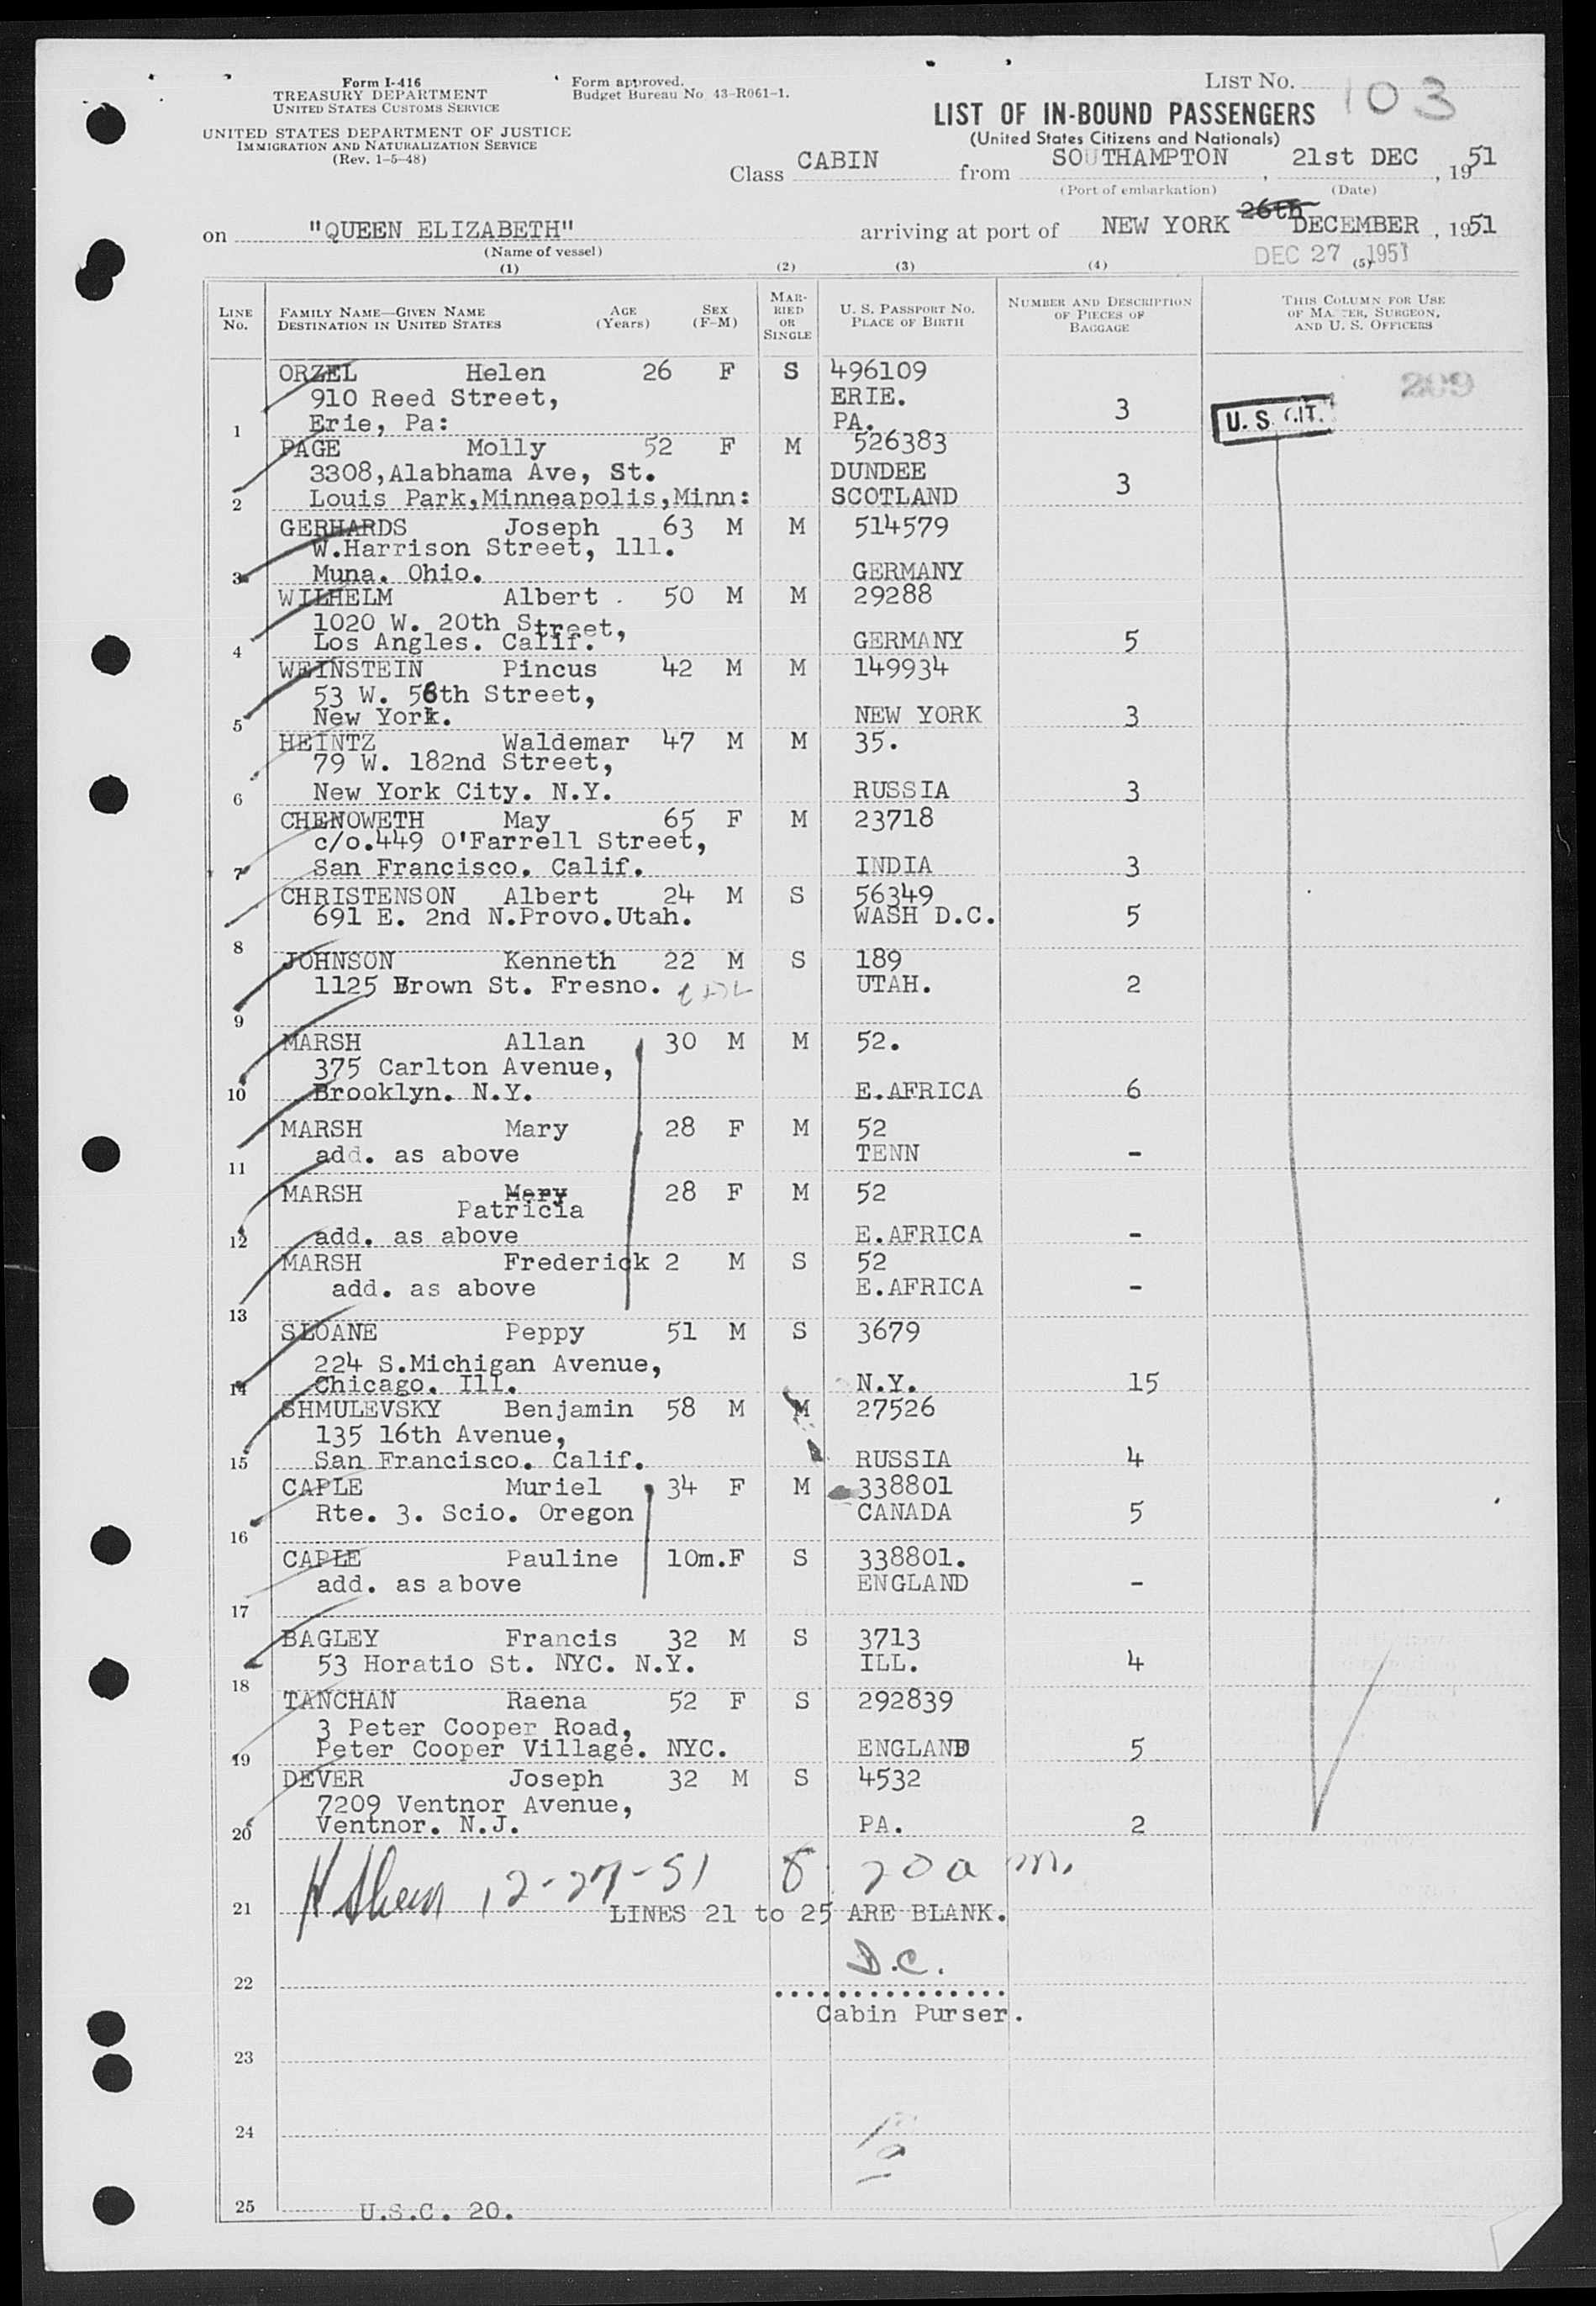 Form I-416
TREASURY DEPARTMENT
UNITED STATES CUSTOMS SERVICE
UNITED STATES DEPARTMENT OF JUSTICE
IMMIGRATION AND NATURALIZATION SERVICE
(Rev. 1-5-48)
Form approved.
Budget Bureau No. 43-R061-1.
LIST NO. 103
LIST OF IN-BOUND PASSENGERS
(United States Citizens and Nationals)
Class CABIN from SOUTHAMPTON, 21st DEC, 1951
(Port of embarkation) (Date)
on "QUEEN ELIZABETH" arriving at port of NEW YORK 26th DECEMBER, 1951
(Name of vessel)
DEC 27 1951
(1) (2) (3) (4) (5)
LINE NO. FAMILY NAME—GIVEN NAME DESTINATION IN UNITED STATES AGE (Years) SEX (F-M) MARRIED OR SINGLE U. S. PASSPORT NO. PLACE OF BIRTH NUMBER AND DESCRIPTION OF PIECES OF BAGGAGE THIS COLUMN FOR USE OF MASTER, SURGEON, AND U. S. OFFICERS
ORZEL Helen 26 F S 496109 209
910 Reed Street, ERIE. 3 U. S. CIT.
1 Erie, Pa: PA.
PAGE Molly 52 F M 526383
3308,Alabhama Ave, St. DUNDEE 3
2 Louis Park,Minneapolis,Minn: SCOTLAND
GERHARDS Joseph 63 M M 514579
W.Harrison Street, 111.
3 Muna. Ohio. GERMANY
WILHELM Albert 50 M M 29288
1020 W. 20th Street,
4 Los Angles. Calif. GERMANY 5
WEINSTEIN Pincus 42 M M 149934
53 W. 56th Street,
5 New York. NEW YORK 3
HEINTZ Waldemar 47 M M 35.
79 W. 182nd Street,
6 New York City. N.Y. RUSSIA 3
CHENOWETH May 65 F M 23718
c/o.449 O'Farrell Street,
7 San Francisco. Calif. INDIA 3
CHRISTENSON Albert 24 M S 56349
691 E. 2nd N.Provo.Utah. WASH D.C. 5
8
JOHNSON Kenneth 22 M S 189
1125 Brown St. Fresno. UTAH. 2
9
MARSH Allan 30 M M 52.
375 Carlton Avenue,
10 Brooklyn. N.Y. E.AFRICA 6
MARSH Mary 28 F M 52
add. as above TENN -
11
MARSH Mary 28 F M 52
Patricia
12 add. as above E.AFRICA -
MARSH Frederick 2 M S 52
add. as above E.AFRICA -
13
SLOANE Peppy 51 M S 3679
224 S.Michigan Avenue,
14 Chicago. Ill. N.Y. 15
SHMULEVSKY Benjamin 58 M M 27526
135 16th Avenue,
15 San Francisco. Calif. RUSSIA 4
CAPLE Muriel 34 F M 338801
Rte. 3. Scio. Oregon CANADA 5
16
CAPLE Pauline 10m.F S 338801.
add. as above ENGLAND -
17
BAGLEY Francis 32 M S 3713
53 Horatio St. NYC. N.Y. ILL. 4
18
TANCHAN Raena 52 F S 292839
3 Peter Cooper Road,
19 Peter Cooper Village. NYC. ENGLAND 5
DEVER Joseph 32 M S 4532
7209 Ventnor Avenue,
20 Ventnor. N.J. PA. 2
12-27-51 8 20 a m.
21 LINES 21 to 25 ARE BLANK.
D.C.
22
Cabin Purser.
23
24
25 U.S.C. 20.